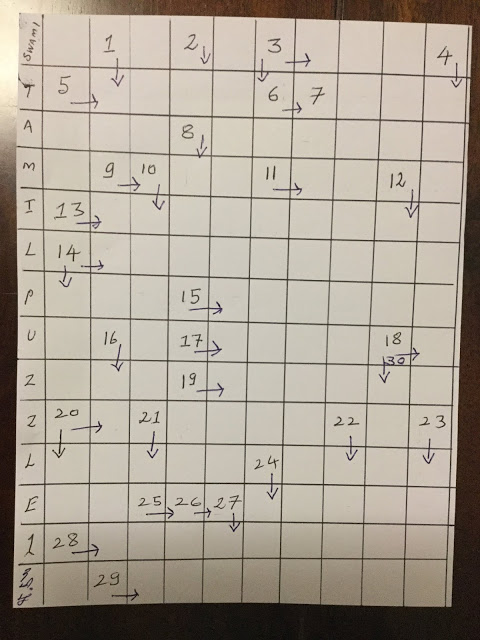 SWAMI 1 2 3 4
T 5 6 7
A 8
M 9 10 11 12
I 13
L 14
P 15
U 16 17 18
30
Z 19
Z 20 21 22 23
L 24
E 25 26 27
1 28
29